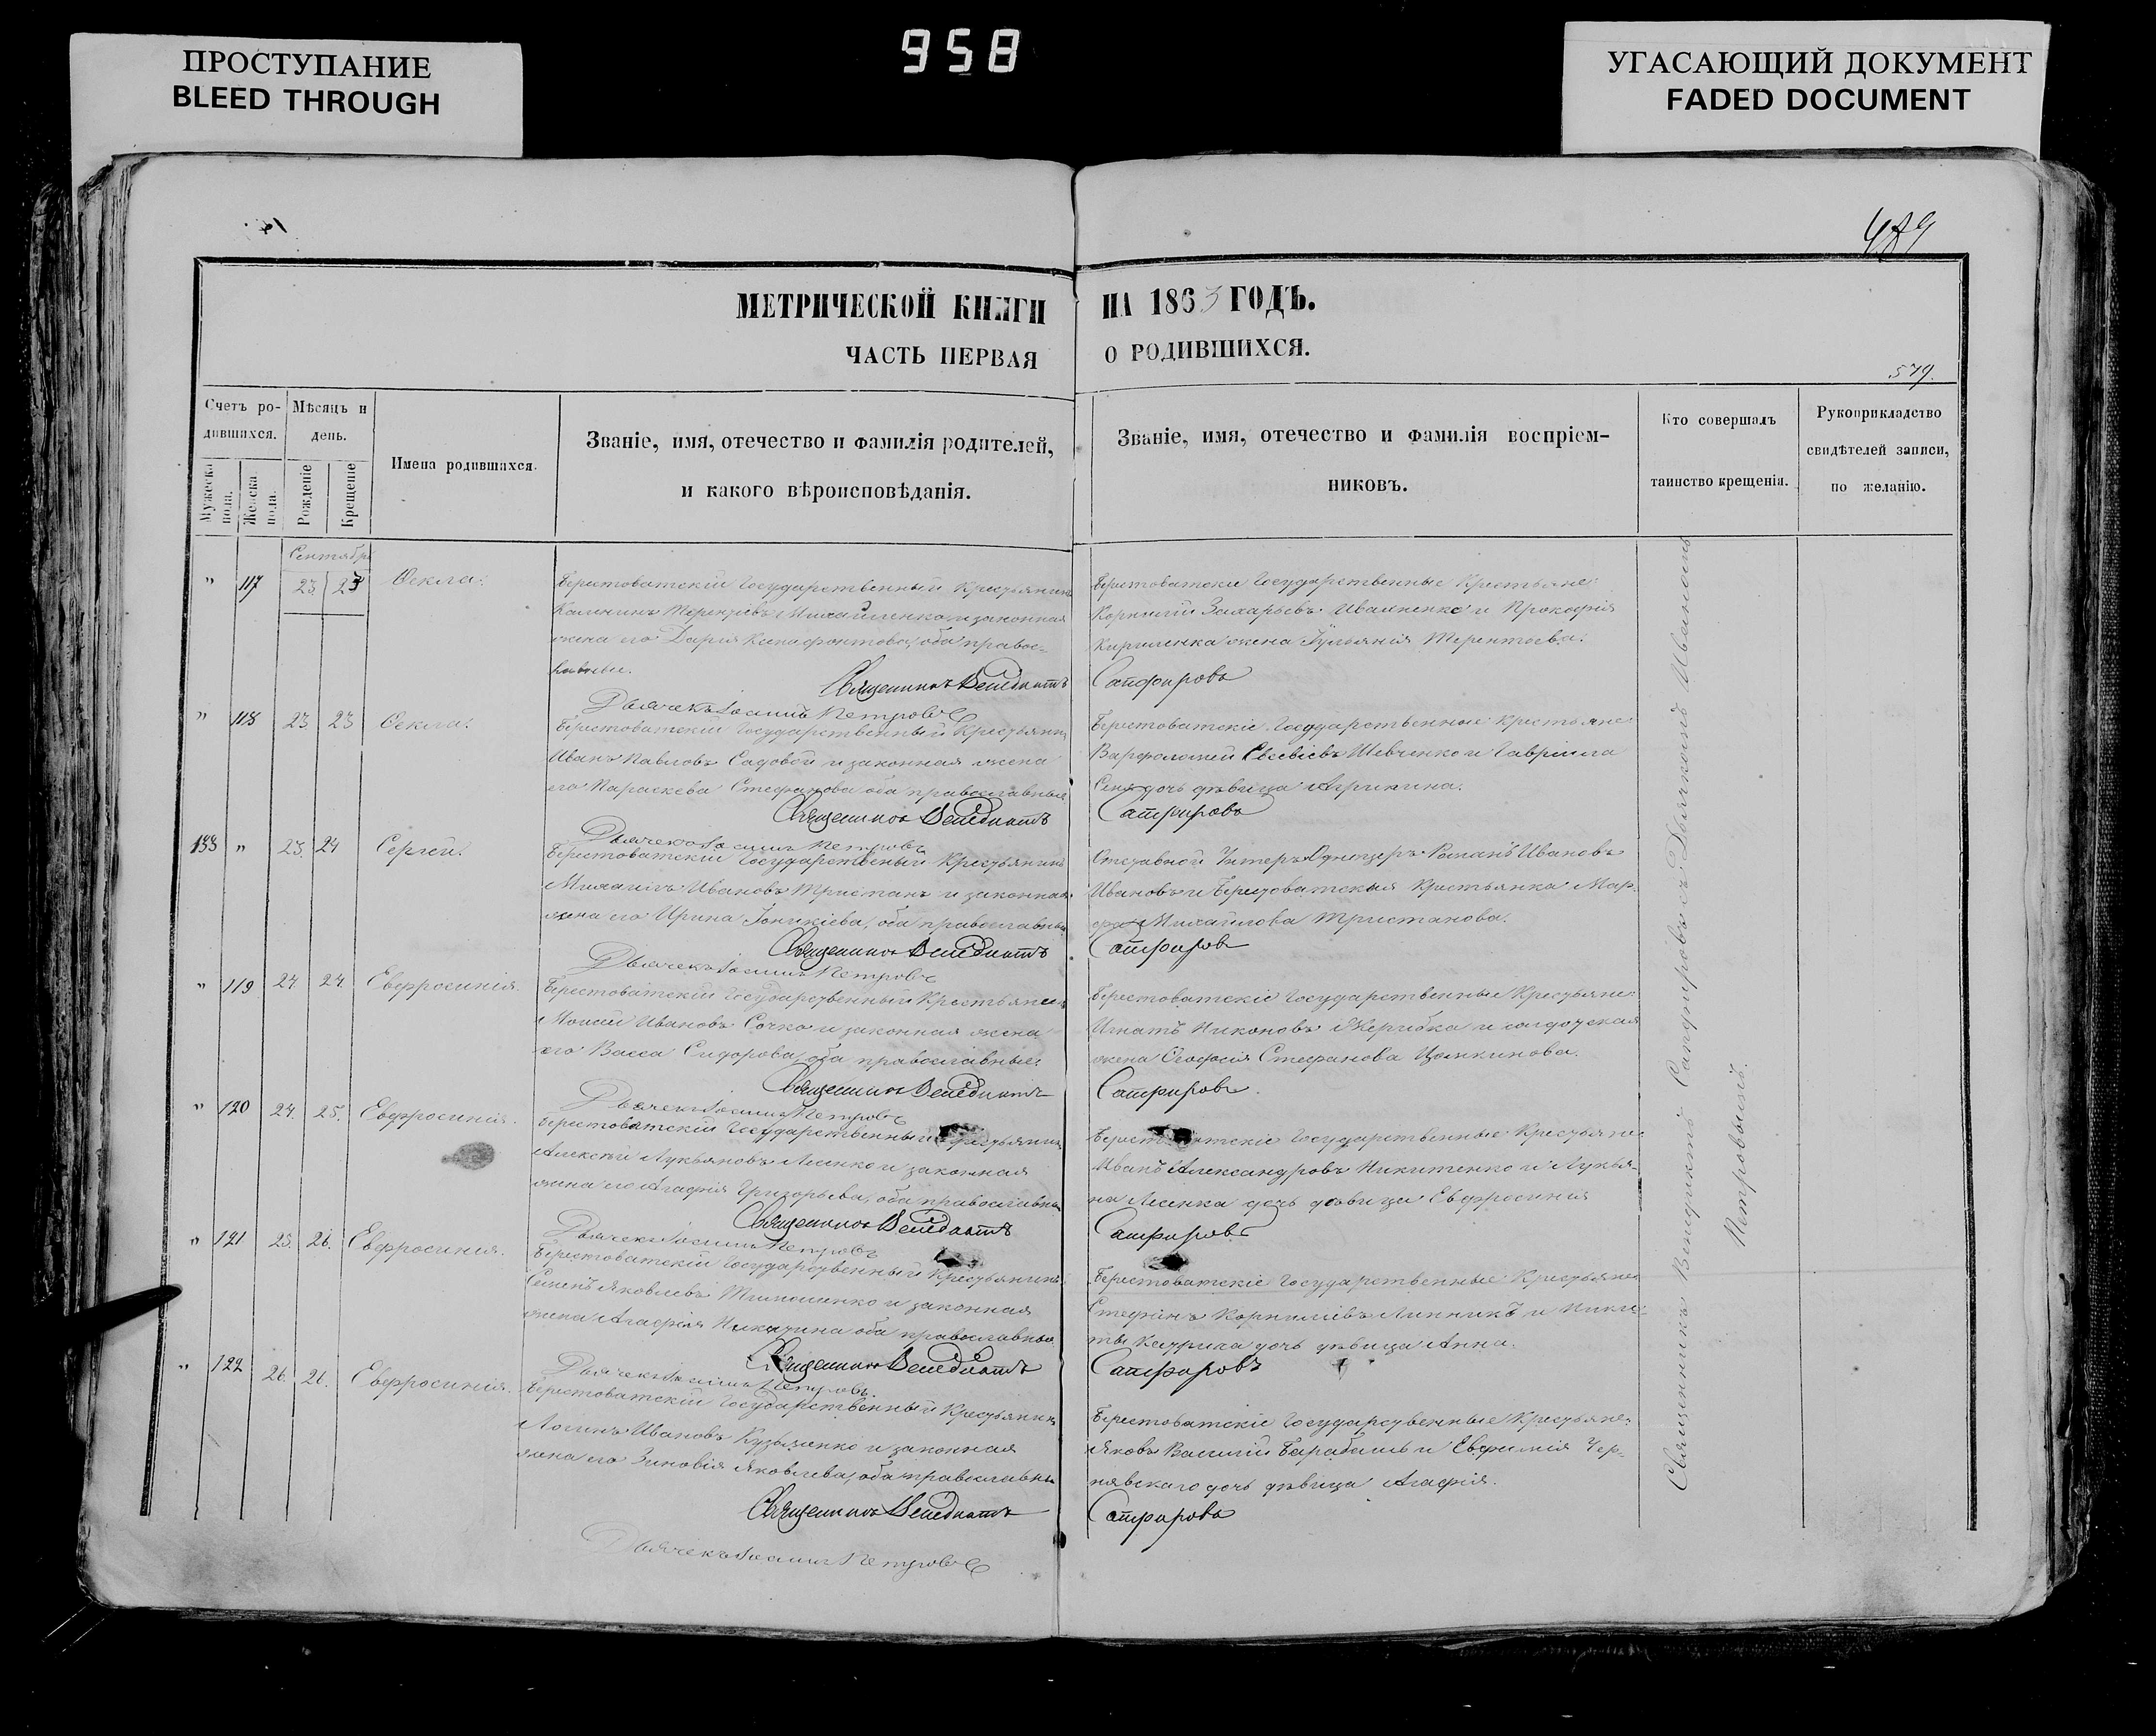 ПРОСТУПАНИЕ
BLEED THROUGH
958
УГАСАЮЩИЙ ДОКУМЕНТ
FADED DOCUMENT
489
МЕТРИЧЕСКОЙ КНИГИ НА 1863 ГОДЪ.
ЧАСТЬ ПЕРВАЯ О РОДИВШИХСЯ.
579.
Счетъ ро-
дившихся.
Мужеска
пола.
Женска
пола.
Мѣсяцъ и
день.
Рожденіе
Крещеніе
Имена родившихся.
Званіе, имя, отечество и фамилія родителей,
и какого вѣроисповѣданія.
Званіе, имя, отечество и фамилія воспріем-
никовъ.
Кто совершалъ
таинство крещенія.
Рукоприкладство
свидѣтелей записи,
по желанію.
Сентябрь
" 117 23 23 Ѳекла.
Берестоватскій Государственный Крестьянинъ
Михайленко и законная
жена его Дарія Ксенофонтова, оба правос-
лавные.
Священникъ Венедиктъ
Дьячекъ Іоаннъ Петровъ
Берестоватскіе Государственные Крестьяне:
Корнилій Захарьевъ Иваненко и Прокофія
Кириленка жена Іульянія Терентьева.
Сапфировъ
" 118 23 23 Ѳекла.
Берестоватскій Государственный Крестьянинъ
Иванъ Павловъ Садовой и законная жена
его Параскева Стефанова оба православные
Священникъ Венедиктъ
Дьячекъ Іоаннъ Петровъ
Берестоватскіе Государственные крестьяне
Варфоломей Евсевіевъ Шевченко и Гавріила
дочь дѣвица
Сапфировъ
133 " 23. 24 Сергій.
Берестоватскій Государственный Крестьянинъ
Ивановъ Тристанъ и законная
жена его Ирина Іоникіева, оба православные
Священникъ Венедиктъ
Дьячекъ Іоаннъ Петровъ
Отставной Унтеръ Офицеръ Романъ Ивановъ
Ивановъ и Берестоватская Крестьянка Мар-
фа Михайлова Тристанова.
Сапфировъ
" 119 24 24 Евфросинія.
Берестоватскій Государственный Крестьянинъ
Моисей Ивановъ Сочко и законная жена
его Васса Сидорова, оба православные.
Священникъ Венедиктъ
Дьячекъ Іоаннъ Петровъ
Берестоватскіе Государственные Крестьяне:
Игнатъ Никоновъ Жерибка и солдатская
жена Ѳеодосія Стефанова
Сапфировъ
" 120 24. 25. Евфросинія.
Берестоватскій Государственный Крестьянинъ
Алексѣй Лукьяновъ Лисенко и законная
жена его Агафія Григорьева, оба православные
Священникъ Венедиктъ
Дьячекъ Іоаннъ Петровъ
Берестоватскіе Государственные Крестьяне
Иванъ Александровъ Никитенко и Лукья-
на Лисенка дочь дѣвица Евфросинія
Сапфировъ
" 121 25. 26. Евфросинія.
Берестоватскій Государственный Крестьянинъ
Семенъ Яковлевъ Тимошенко и законная
жена Агафія Никитина оба православные
Священникъ Венедиктъ
Дьячекъ Іоаннъ Петровъ.
Берестоватскіе Государственные Крестьяне
Стефанъ Корниліевъ Линникъ и Ники-
ты дочь дѣвица Анна.
Сапфировъ
" 122 26. 26. Евфросинія.
Берестоватскій Государственный Крестьянинъ
Ивановъ Кузьменко и законная
жена его Зиновія Яковлева, оба православные
Священникъ Венедиктъ
Дьячекъ Іоаннъ Петровъ
Берестоватскіе Государственные Крестьяне:
Яковъ Барабашъ и Евфимія Чер-
нявскаго дочь дѣвица Агафія.
Сапфировъ
Священникъ Венедиктъ Сапфировъ съ Дьячкомъ Иваномъ
Петровымъ.